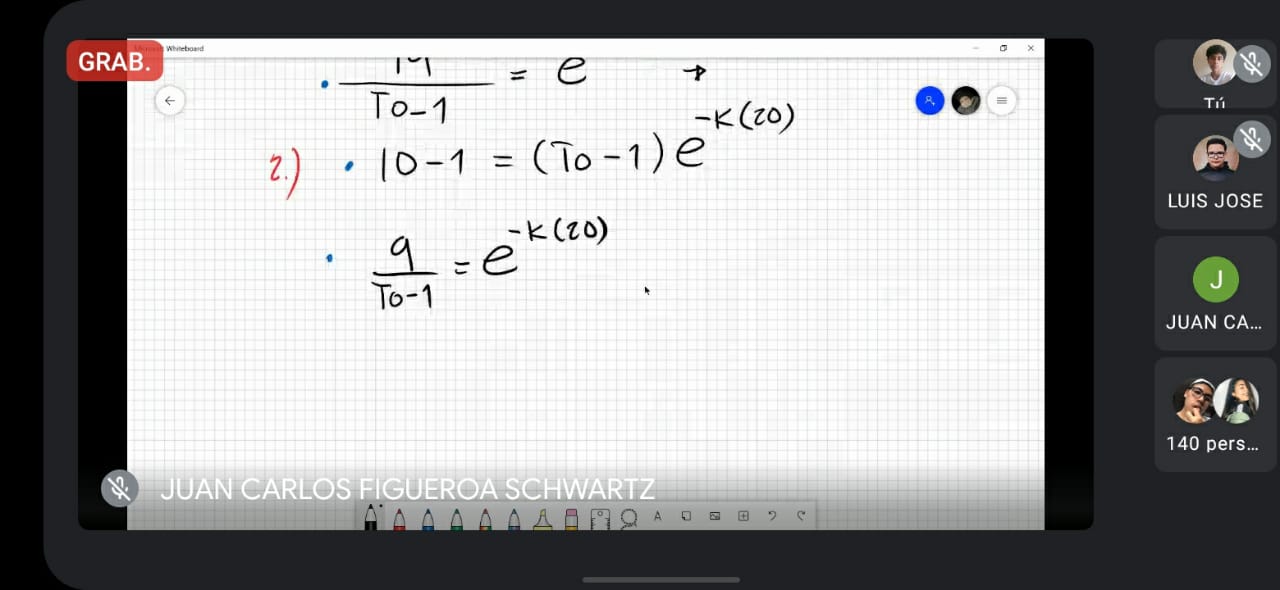 GRAB.
Whiteboard
To-1 = e →
2.) • 10-1 = (To-1)e^-K(20)
• 9/To-1 = e^-K(20)
JUAN CARLOS FIGUEROA SCHWARTZ
A
Tú
LUIS JOSE
J
JUAN CA...
140 pers...